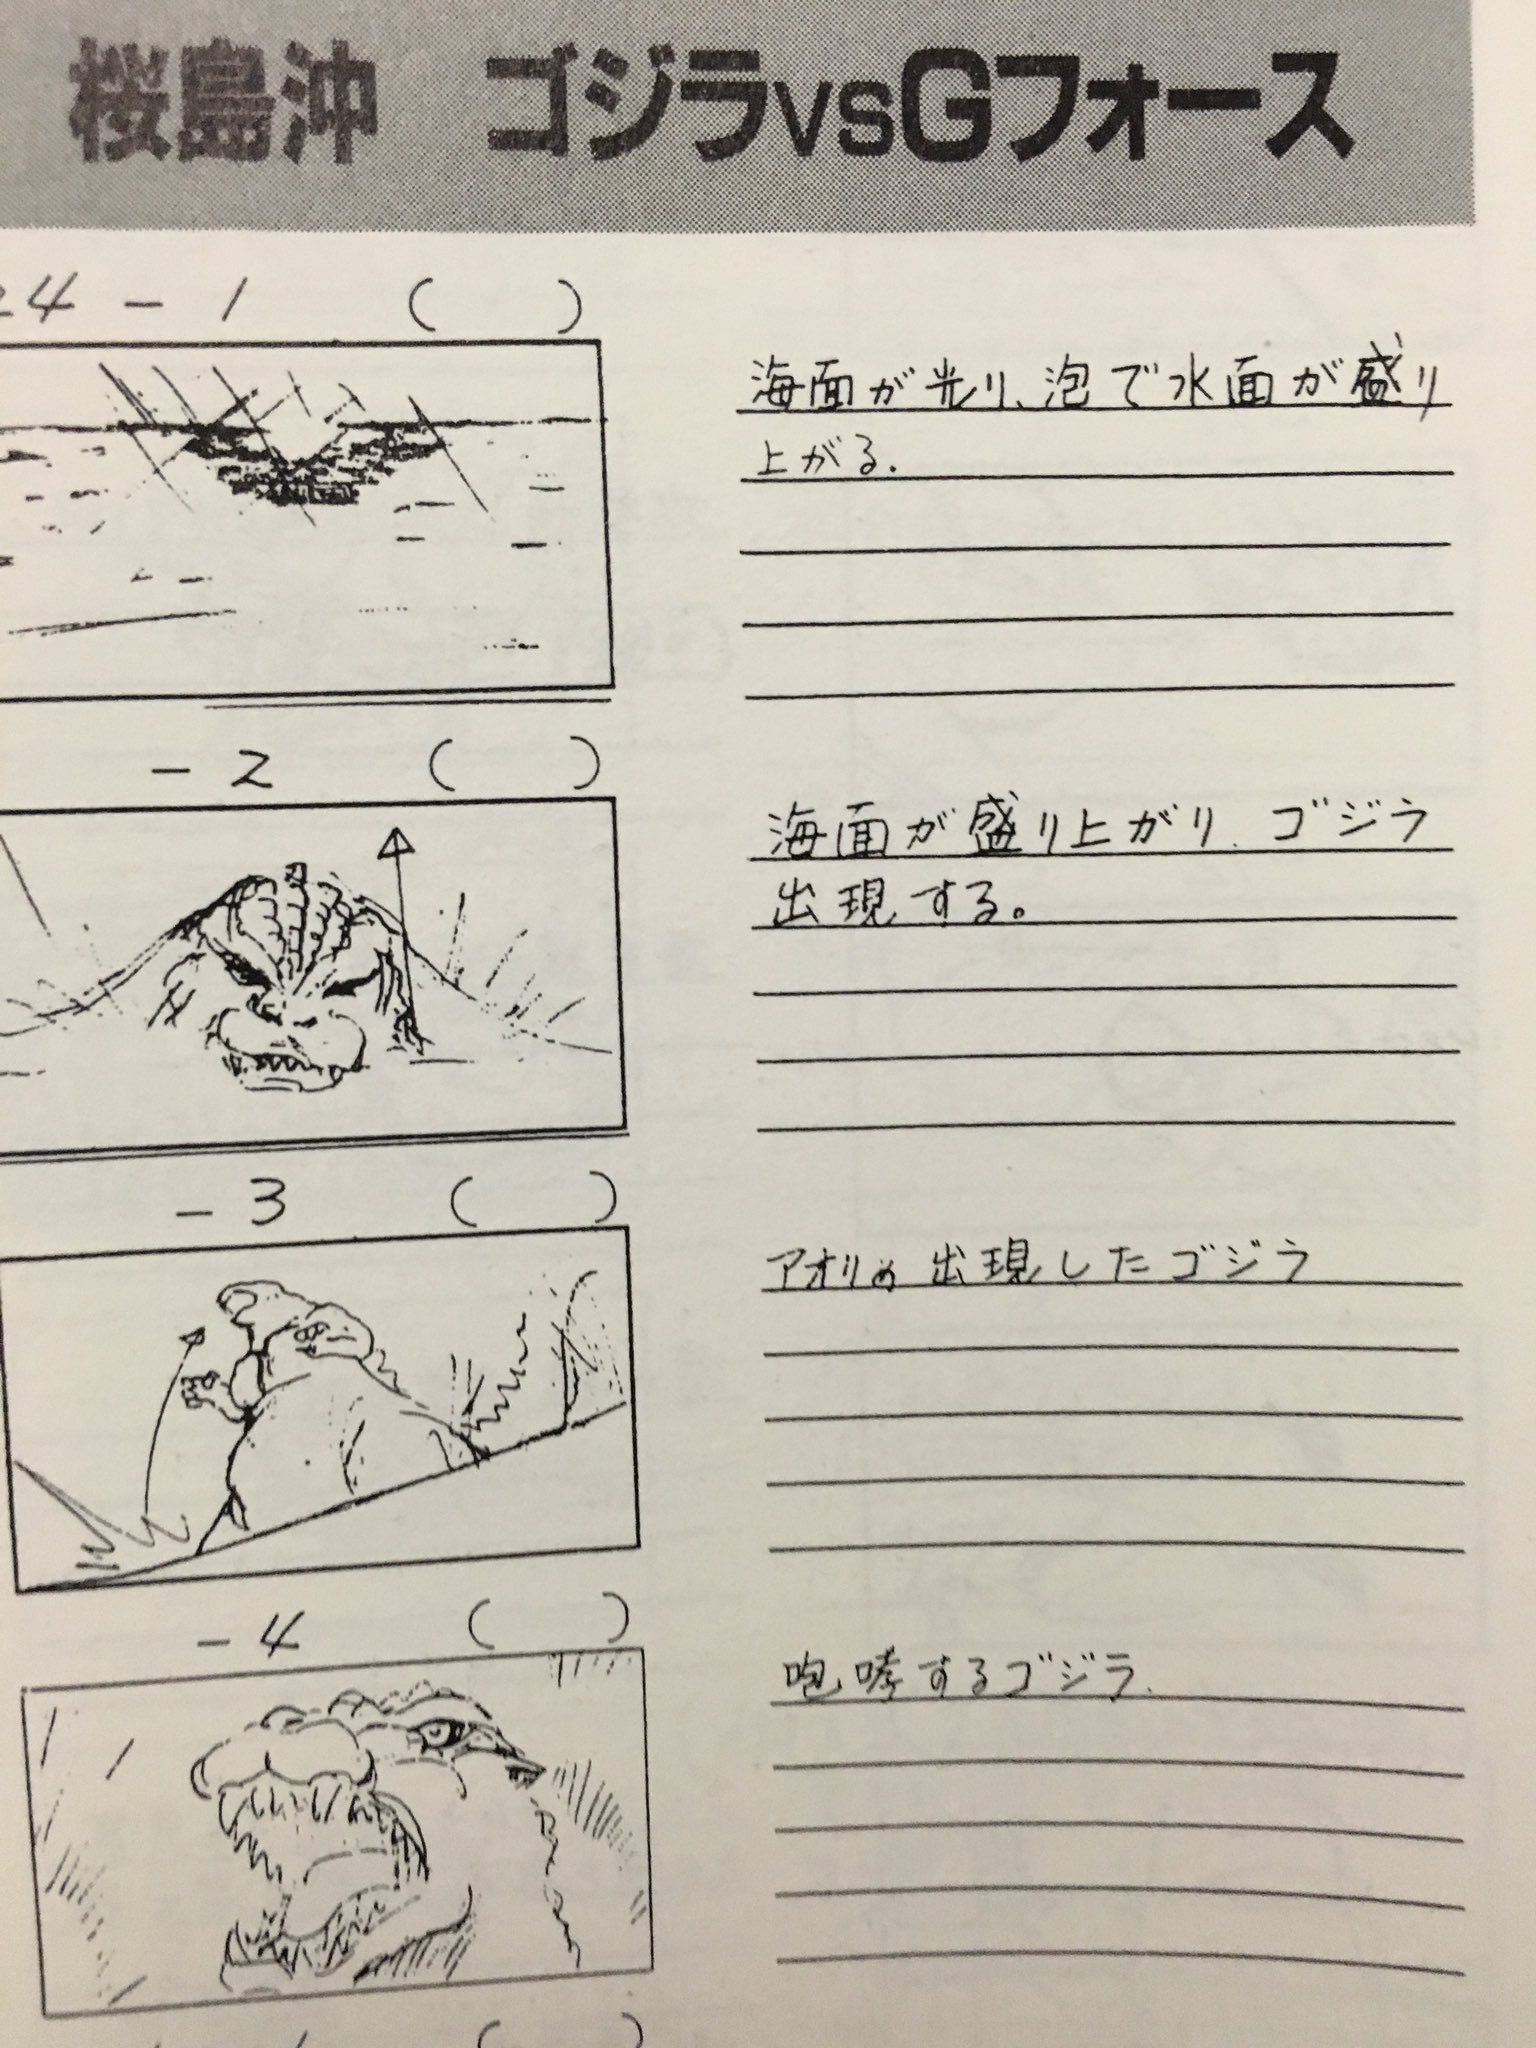 桜島沖 ゴジラvsGフォース
24-1 ( )
海面が光り、泡で水面が盛り
上がる.
-2 ( )
海面が盛り上がり、ゴジラ
出現する。
-3 ( )
アオリの出現したゴジラ
-4 ( )
咆哮するゴジラ.